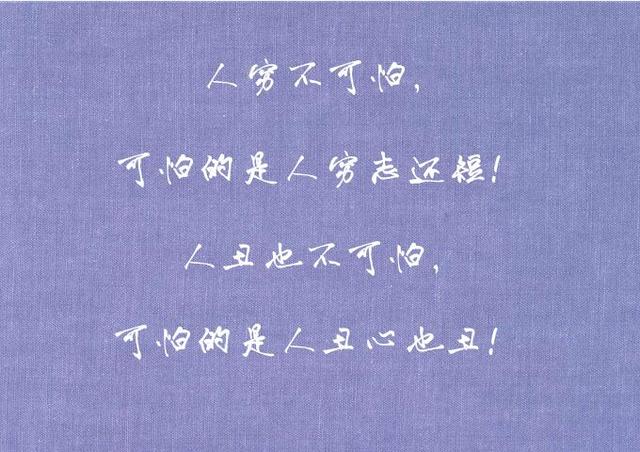 人穷不可怕,
可怕的是人穷志还短!
人丑也不可怕,
可怕的是人丑心也丑!